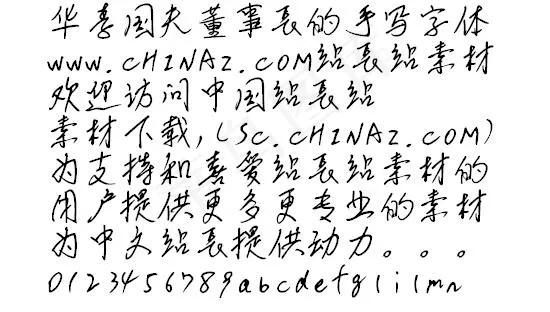 华喜国夫董事长的手写字体
www.cHINAz.cOM站长站素材
欢迎访问中国站长站
素材下载,(Sc.cHINAz.cOM)
为支持和喜爱站长站素材的
用户提供更多更专业的素材
为中文站长提供动力。。。
0123456789abcdefglilmn